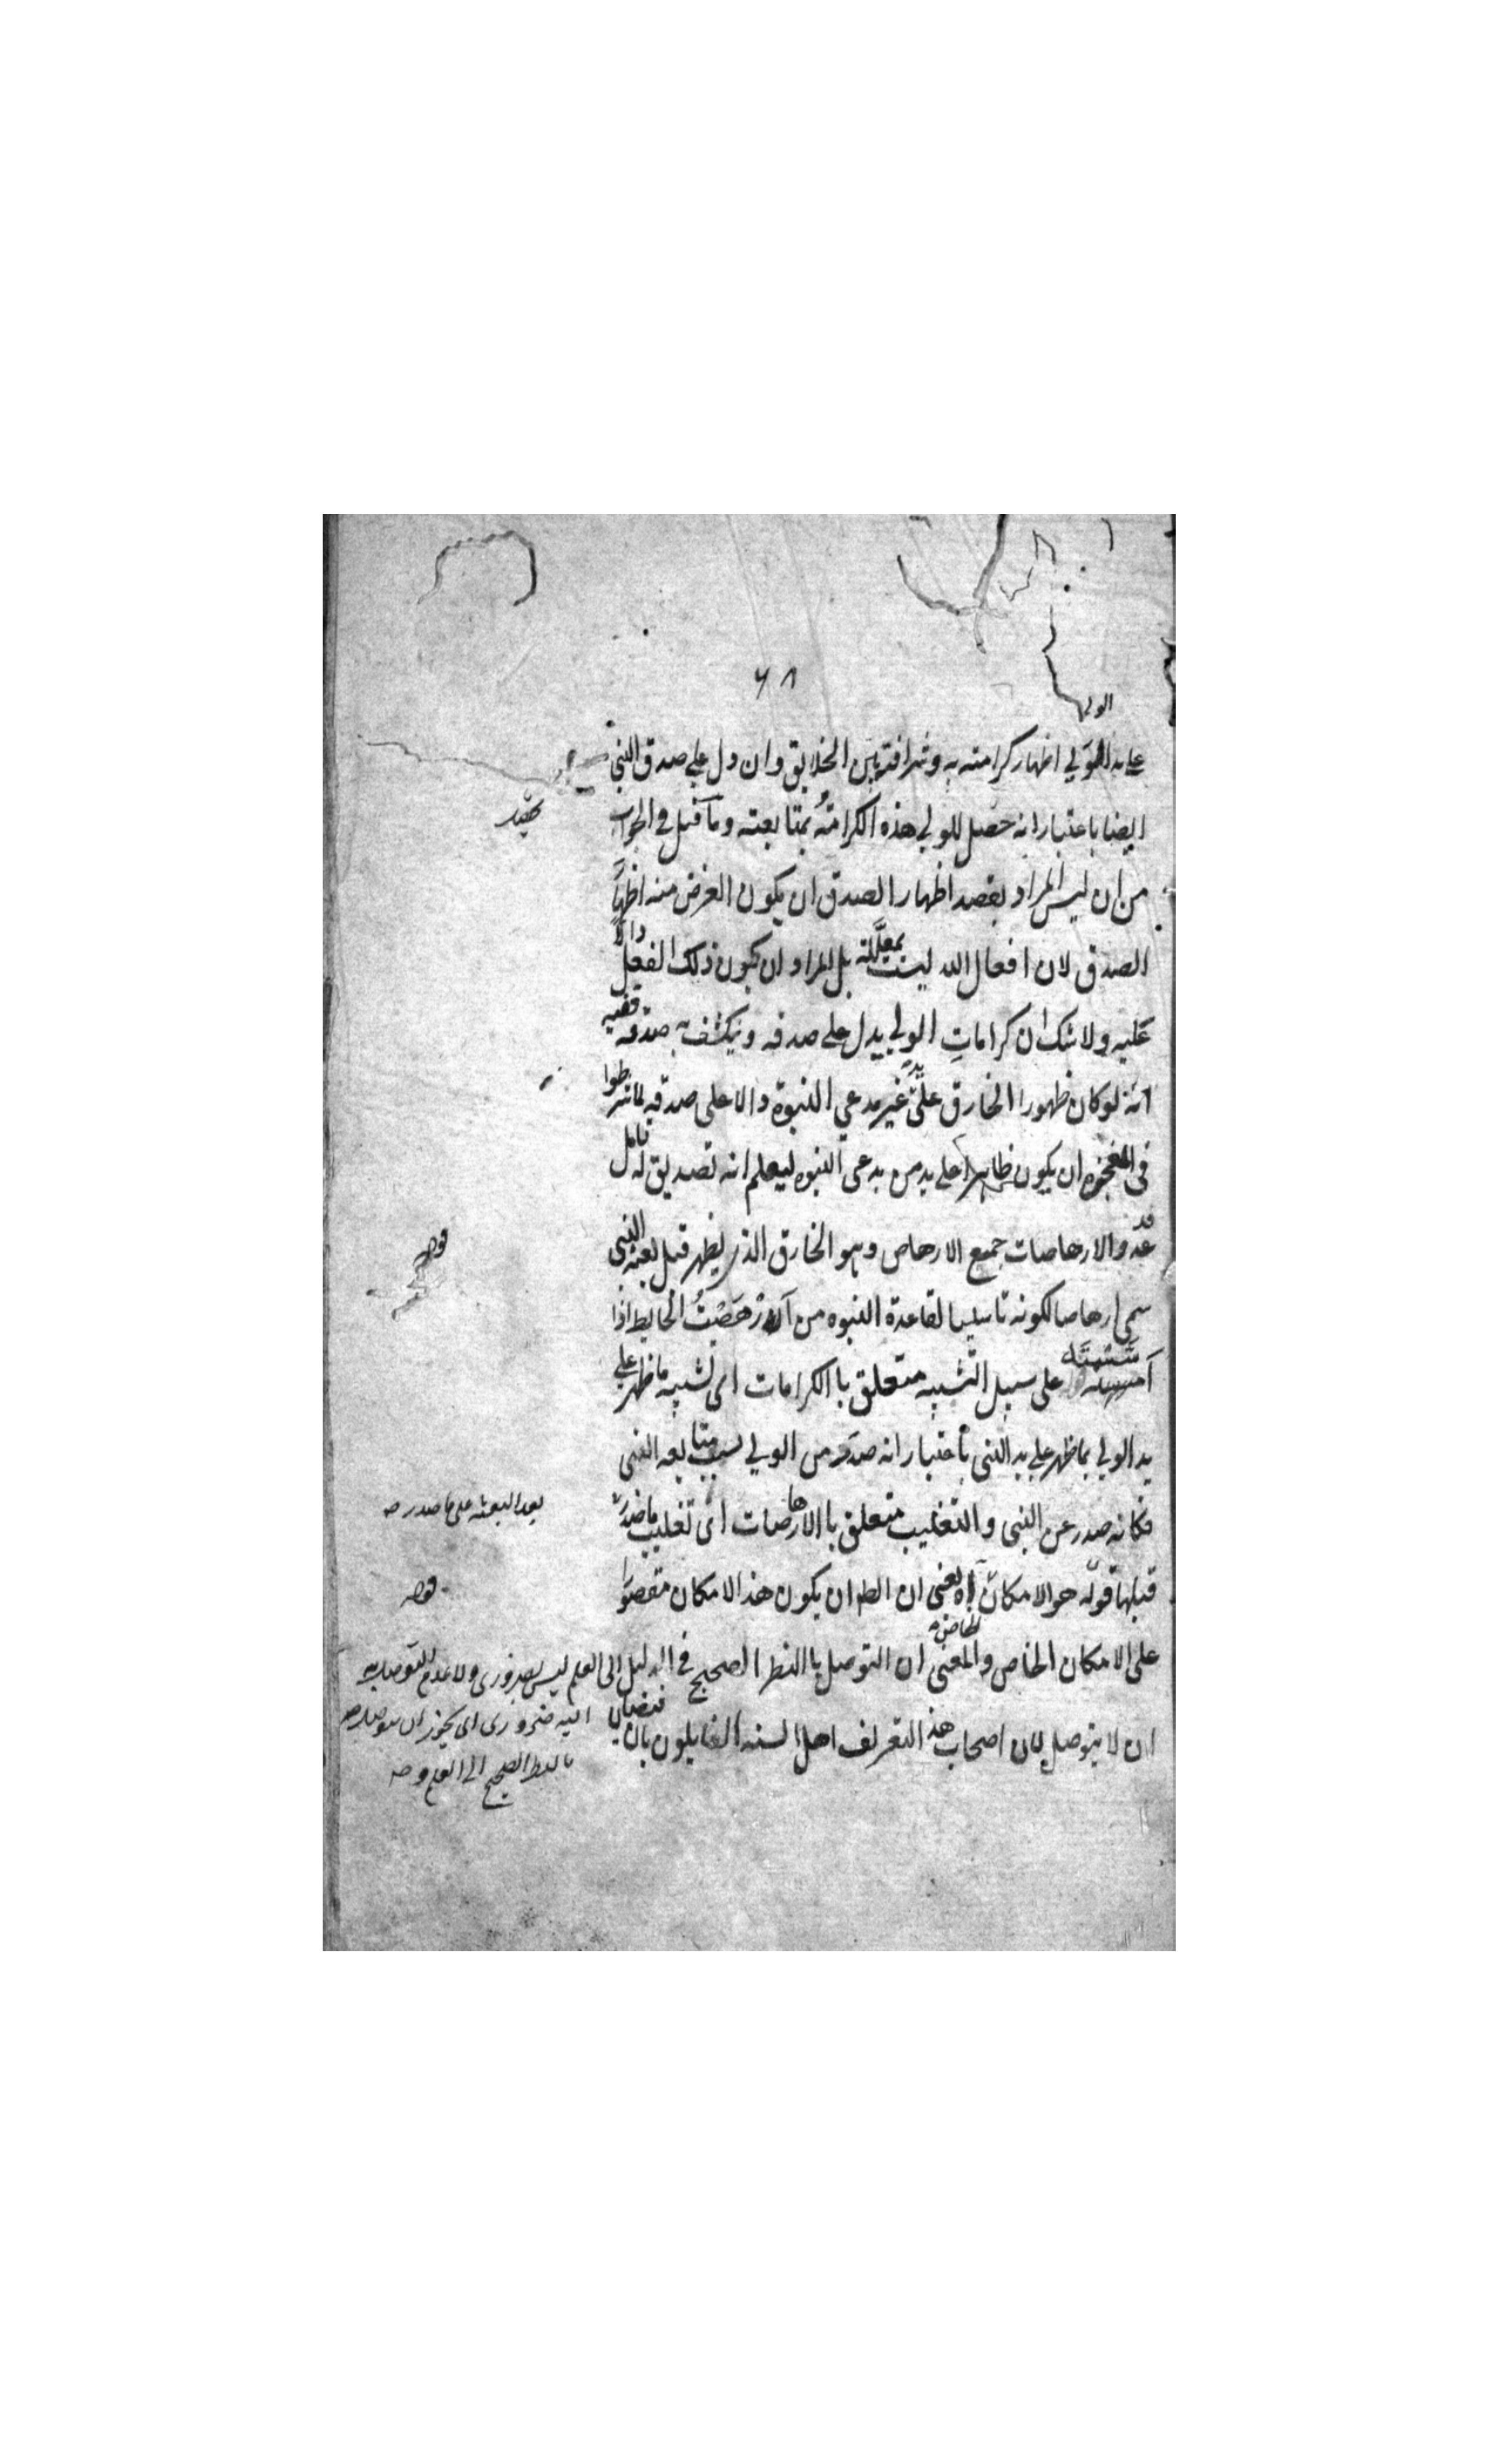 ٦٨
الولي
على يد الولي اظهار كرامته به وشرافته بين الخلايق وان دل على صدق النبي
ايضا باعتبار انه حصل للولي هذه الكرامة بمتابعته وما قيل في الجواب
من ان ليس المراد بقصد اظهار الصدق ان يكون الغرض منه اظهار
الصدق لان افعال الله ليست بمعللة بل المراد ان يكون ذلك الفعل دالا
عليه ولا شك ان كرامات الولي يدل على صدقه وينكشف به صدقه ففيه
انه لو كان ظهور الخارق على يد غير مدعي النبوة دالا على صدقه لما شرطوا
في المعجزه ان يكون ظاهرا على يد من يدعي النبوه ليعلم انه تصديق له تامل
قد عد والارهاصات جميع الارهاص وهو الخارق الذي يظهر قبل بعثة النبي
سمي ارهاصا لكونه تاسيسا لقاعدة النبوه من ارهصت الحايط اذا
على سبيل التشبيه متعلق باالكرامات اى تشبيه ما ظهر على
يد الولي بما ظهر على يد النبي باعتبار انه صدر من الولي بسبب متابعه النبي
فكانه صدر عن النبي والتغليب متعلق باالارهاصات اى تغليب ما صدر
بعد البعثه على ما صدر صح
قبلها قوله هو الامكان اه يعني ان الظ ان يكون هذا الامكان مقصورا
قوله
على الامكان الخاص والمعنى ان التوصل باالنظر الصحيح في الدليل الى العلم ليس بضرورى ولا عدم التوصل به
الخاص
اليه ضرورى اى يجوز ان يتوصل به
بالنظر الصحيح الى العلم و صح
ان لا يتوصل لان اصحاب هذا التعريف اهل السنه القايلون بان فيضان